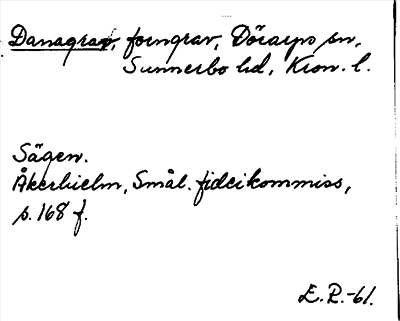 Danagrav, forngrav, Dörarps sn,
Sunnerbo hd, Kron. l.
Sägen.
Åkerhielm, Smål. fideikommiss,
s. 168 f.
E. P. -61.